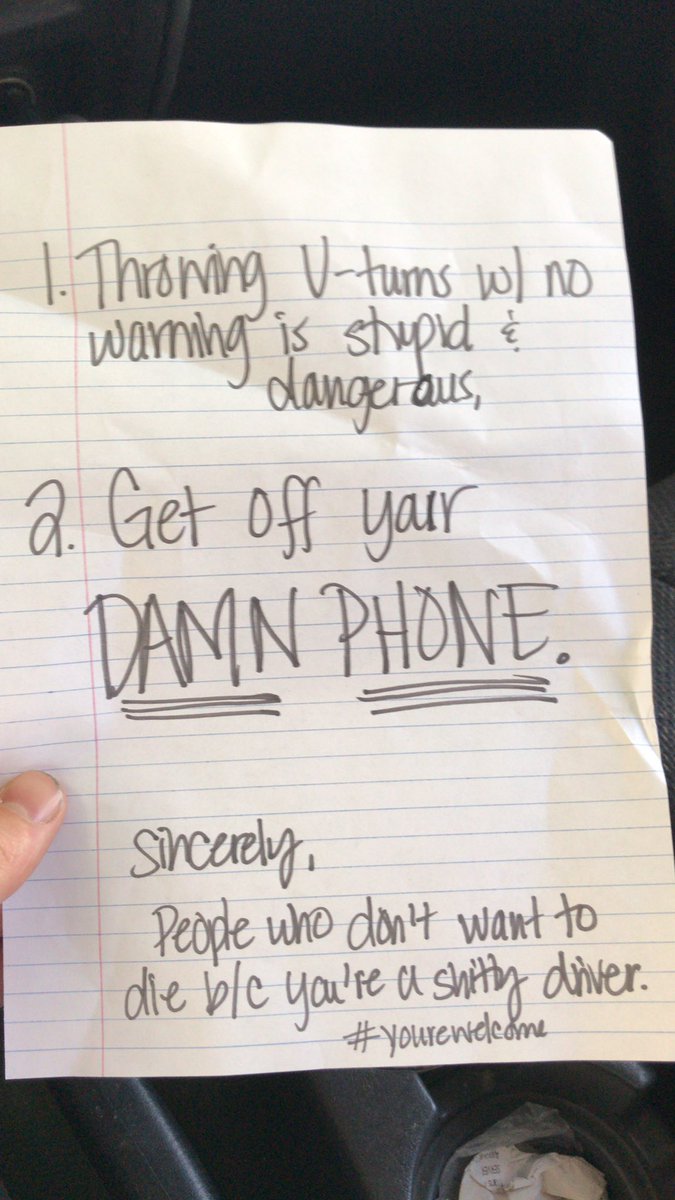 1. Throwing U-turns w/ no
warning is stupid &
dangerous,
2. Get off your
DAMN PHONE.
Sincerely,
People who don't want to
die b/c you're a shitty driver.
#yourewelcome